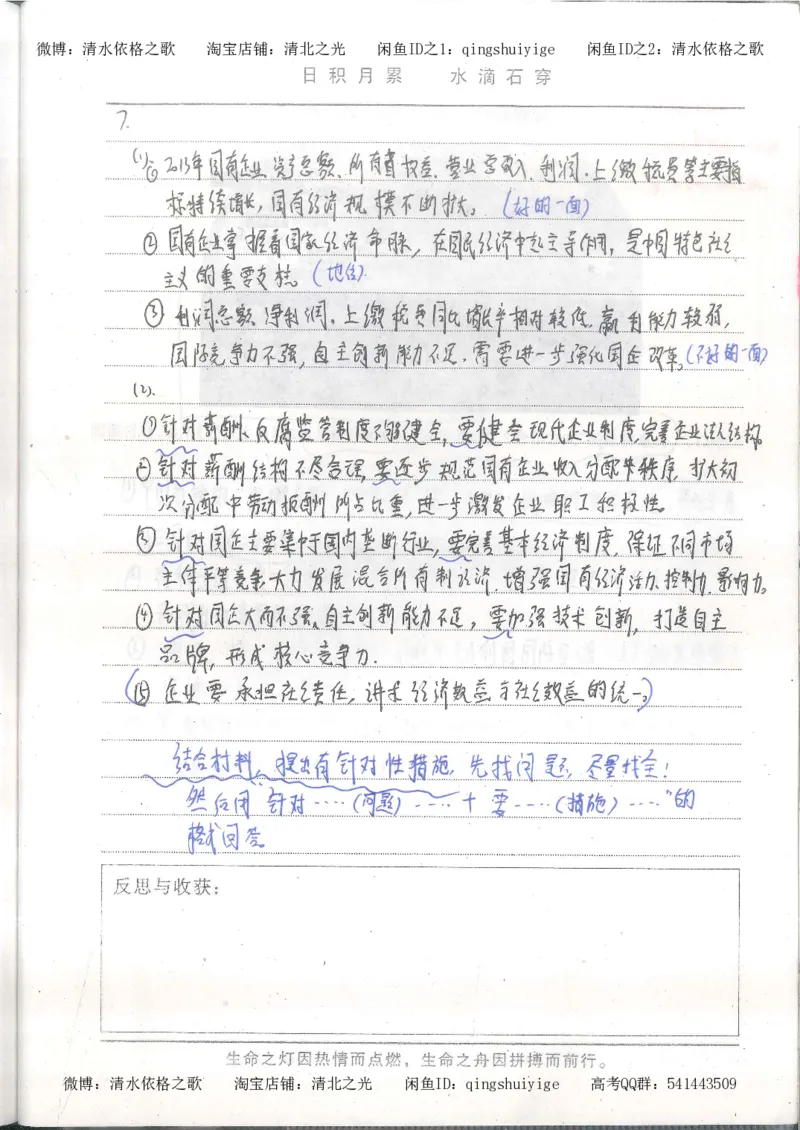 微博：清水依格之歌 淘宝店铺：清北之光 闲鱼ID之1：qingshuiyige 闲鱼ID之2：清水依格之歌
日积月累 水滴石穿
7.
(1)① 2013年国有企业资产总额、所有者权益、营业总收入、利润、上缴税员等主要指
标持续增长，国有经济规模不断扩大。（好的一面）
② 国有企业掌握着国家经济命脉，在国民经济中起主导作用，是中国特色社会
主义的重要支柱。（地位）
③ 利润总额、净利润、上缴税员同比增长率相对较低，赢利能力较弱，
国际竞争力不强，自主创新能力不足，需要进一步强化国企改革。（不好的一面）
(2).
①针对薪酬、反腐监管制度不够健全，要健全现代企业制度，完善企业法人结构。
②针对薪酬结构不尽合理，要逐步规范国有企业收入分配秩序，扩大初
次分配中劳动报酬所占比重，进一步激发企业职工积极性。
③ 针对国企主要集中于国内垄断行业，要完善基本经济制度，保证不同市场
主体平等竞争，大力发展混合所有制经济，增强国有经济活力、控制力、影响力。
④ 针对国企大而不强、自主创新能力不足，要加强技术创新，打造自主
品牌，形成核心竞争力.
(⑤ 企业要承担社会责任，讲求经济效益与社会效益的统一。)
结合材料，提出有针对性措施，先找问题，尽量找全！
然后用 针对……(问题)……+要……(措施)……"的
格式回答
反思与收获：
生命之灯因热情而点燃，生命之舟因拼搏而前行。
微博：清水依格之歌 淘宝店铺：清北之光 闲鱼ID：qingshuiyige 高考QQ群：541443509